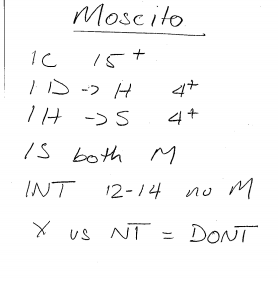 Moscito
1C 15+
1D -> H 4+
1H -> S 4+
1S both M
1NT 12-14 no M
X vs NT = DONT